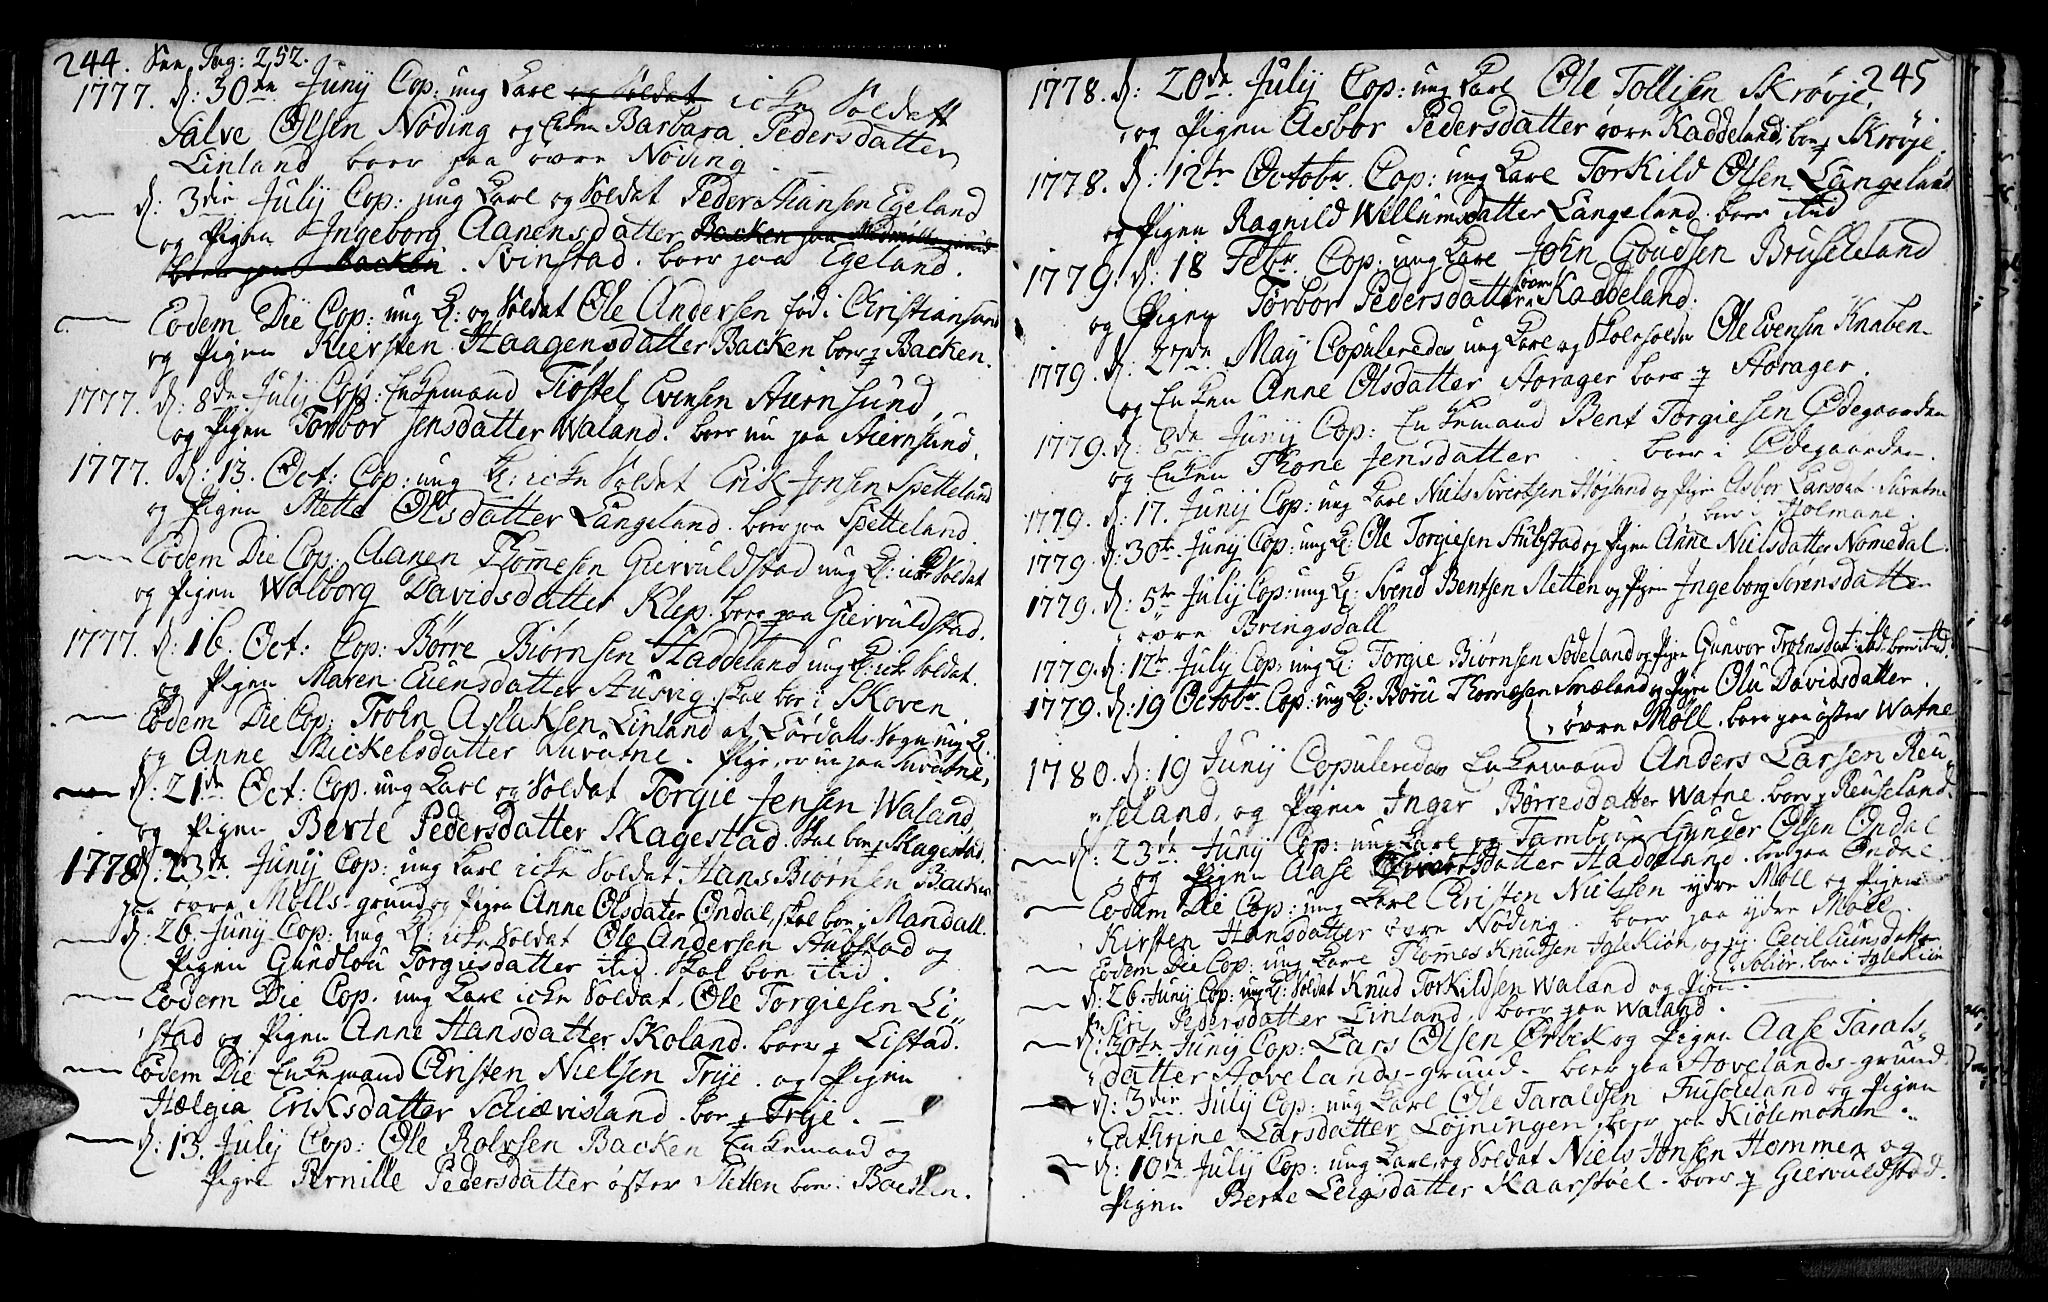 244. See Pag: 252.
1777. d: 30te Junij Cop: ung Karl og Soldat icke Soldat
Salve Olsen Nøding og Enken Barbara Pedersdatter
Linland boer paa øvre Nøding
— d: 3die Julij Cop: ung Karl og Soldat Peder Egeland
og Pigen Ingeborg Aanensdatter Backen paa
boer paa Backen. Svinstad. boer paa Egeland.
— Eodem Die Cop: ung K: og Soldat Ole Andersen fød i Christiansand
og Pigen Kiersten Haagensdatter Backen boer p Backen.
1777. d: 8de Julij Cop: Enkemand Tiøstel Evensen Aiernsund,
og Pigen Torbor Jensdatter Waland. boer nu paa Aiernsund.
1777. d: 13. Oct: Cop: ung K: icke Soldat Erik Jonsen Spetteland
og Pigen Mette Olsdatter Langeland. boer paa Spetteland.
— Eodem Die Cop: Aanen Thomesen Giervuldstad ung K: icke Soldat
og Pigen Walborg Davidsdatter Klep. boer paa Giervuldstad.
1777. d: 16. Oct: Cop: Børre Biørnsen Haddeland ung K: icke Soldat.
og Pigen Maren Euensdatter Ausvig skal boe i Skoven
— Eodem Die Cop: Troen Aslaksen Linland af Lørdalls Sogn ung K.
og Anne Mickelsdatter Luvatne. Pige, er nu paa Luvatne,
— d: 21de Oct: Cop: ung Karl og Soldat Torgie Jensen Waland
og Pigen Berte Pedersdatter Skagestad. Skal boe p Skagestad.
1778 d: 23de Junij Cop: ung Karl icke Soldat Hans Biørnsen Backen
paa øvre Mølls-grund og Pigen Anne Olsdater Ondal, skal boe i Mandall.
— d: 26 Junij Cop: ung K: icke Soldat Ole Andersen Stubstad og
Pigen Gundlou Torgiesdatter itid. skal boe itid.
— Eodem Die Cop. ung Karl icke Soldat. Ole Torgiesen Li„
stad og Pigen Anne Hansdatter Skoland. boer p Listad.
— Eodem Die Enkemand Christen Nielsen Trye. og Pigen
Hælgia Eriksdatter Schiævisland. boe p Trye. —
— d: 13. July Cop: Ole Rolvsen Backen Enkemand og
Pigen Pernille Pedersdatter øster Sletten boer i Backen.
245
1778. d: 20de July Cop: ung Karl Ole Tollisen Skrøvje,
og Pigen Asbor Pedersdatter øvre Kaddeland, boer p Skrøje.
1778. d: 12te Octobr. Cop: ung Karl Torkild Olsen Langeland
og Pigen Ragnild Willumsdatter Langeland. boer itid
1779. d: 18 Febr. Cop: ung Karl John Goudsen Bruseland
og Pigen Torbor Pedersdatter øvre Kaddeland.
1779. d: 27de Maij Copuleredes ung Karl og Skoleholder Ole Evensen Knaben.
og Enken Anne Olsdatter Aorager boer p Aorager.
1779. d: 8de Junij Cop: Enkemand Bent Torgiesen Ødegaarden
og Enken Thone Jensdatter . . boer i Ødegaarden.
1779. d: 17. Junij Cop: ung Karl Niels Sivertsen Højland og Pigen Asbor Larsdat. Luvatne
boer i Holmane.
1779. d: 30te Junij Cop: ung K: Ole Torgiesen Stubstad og Pigen Anne Nielsdatter Nomedal.
1779. d: 5te Julij Cop: ung K: Svend Bentsen Sletten og Pigen Ingeborg Sørensdatter
øvre Bringsdall
1779. d: 12te July Cop: ung K: Torgie Biørnsen Sodeland og Pigen Gunvor Troensdat: itid. boer itid.
1779. d: 19 Octobr. Cop: ung K: Børu Thomesen Smæland og Pigen Olu Davidsdatter
øvre Møll. boer paa øster Watne
1780. d: 19 Junij Copuleredes Enkemand Anders Larsen Reu„
„seland, og Pigen Inger Børresdatter Watne. boer p Reuseland.
— d: 23de Junij Cop: ung Karl og Tambour Gunder Olsen Ondal
og Pigen Aase Sivertsdatter Haddeland. boe paa Ondal.
— Eodem Die Cop: ung Karl Christen Nielsen ydre Møll og Pigen
Kirsten Hansdatter øvre Nøding. boer paa ydre Møll.
— Eodem Die Cop: ung Karl Thomes Knudsen Iglekiøn, og pig. Cecil Euensdatter
Toliør. boe i Iglekiøn
— d: 26 Junij Cop: ung K: Soldat Knud Torkildsen Waland og Pigen.
Siri Pedersdatter Linland. boer paa Waland.
— d: 30te Junij Cop: Lars Olsen Ørbek og Pigen Aase Tarals„
„datter Hovelands-grund. boer paa Hovelands-grund.
— d: 3die Julij Cop: ung Karl Ole Taraldsen Fuseland og Pigen
„Cathrine Larsdatter Løjningen, boer paa Kiølemonen.
— d: 10de July Cop: ung Karl og Soldat Niels Jonsen Hommen og
Pigen Berte Leigsdatter Kaarstøel. boer p Giervuldstad.